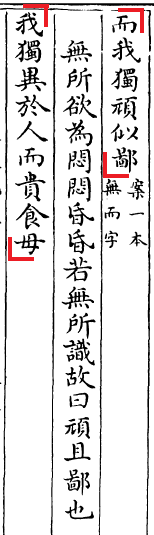 而我獨頑似鄙案一本無而字
無所欲為悶悶昏昏若無所識故曰頑且鄙也
我獨異於人而貴食母